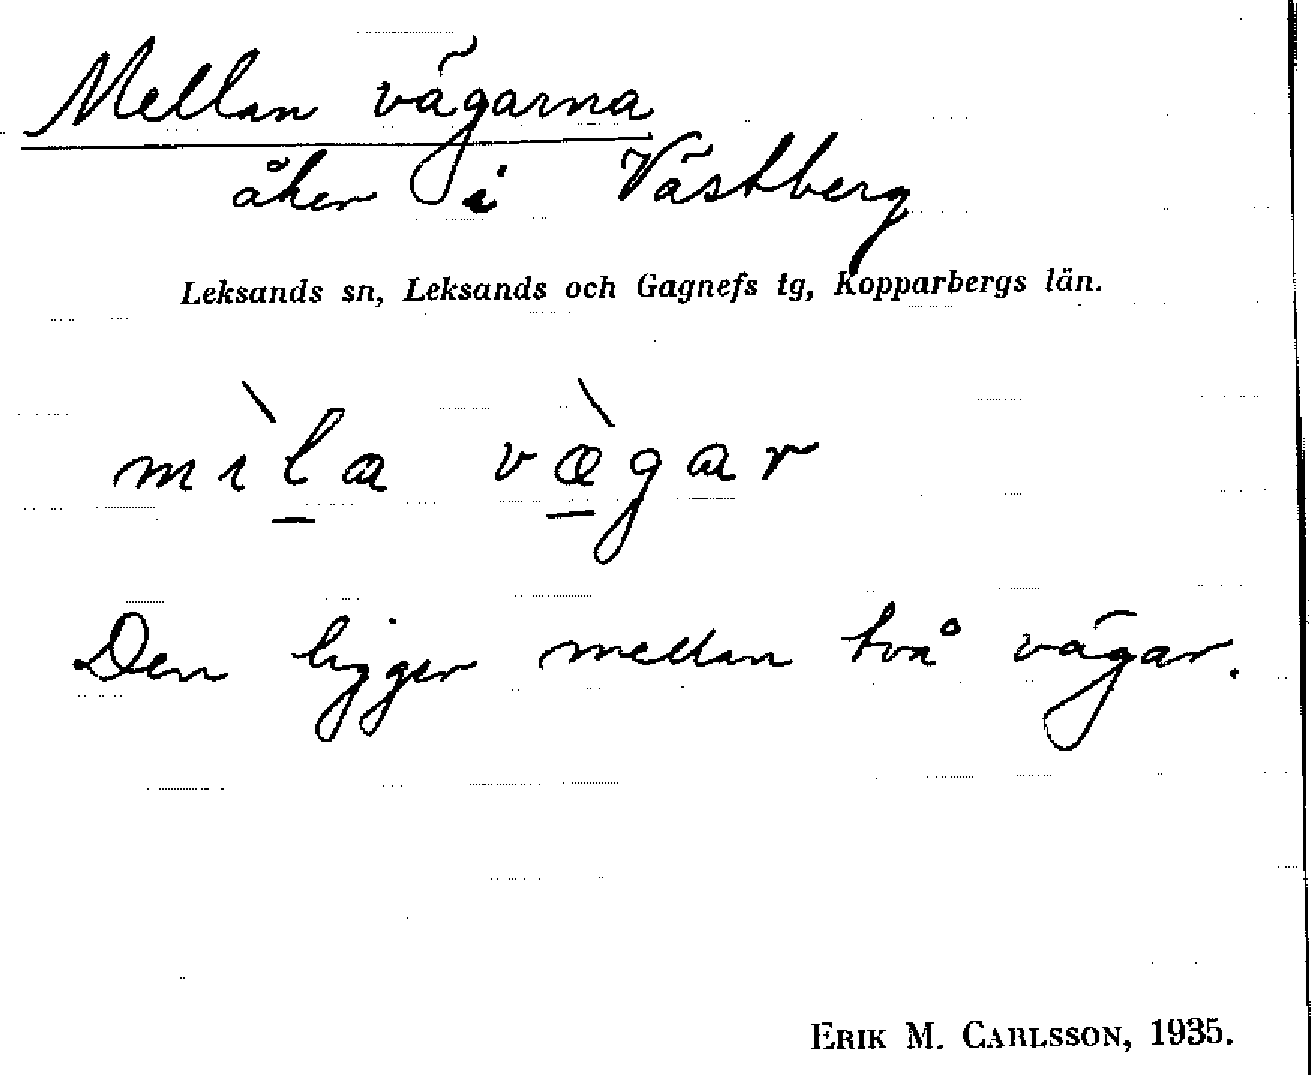 Mellan vägarna
åker i Västberg
Leksands sn, Leksands och Gagnefs tg, Kopparbergs län.
mı̀l̲a væ̲̀gar
Den ligger mellan två vägar.
ERIK M. CARLSSON, 1935.